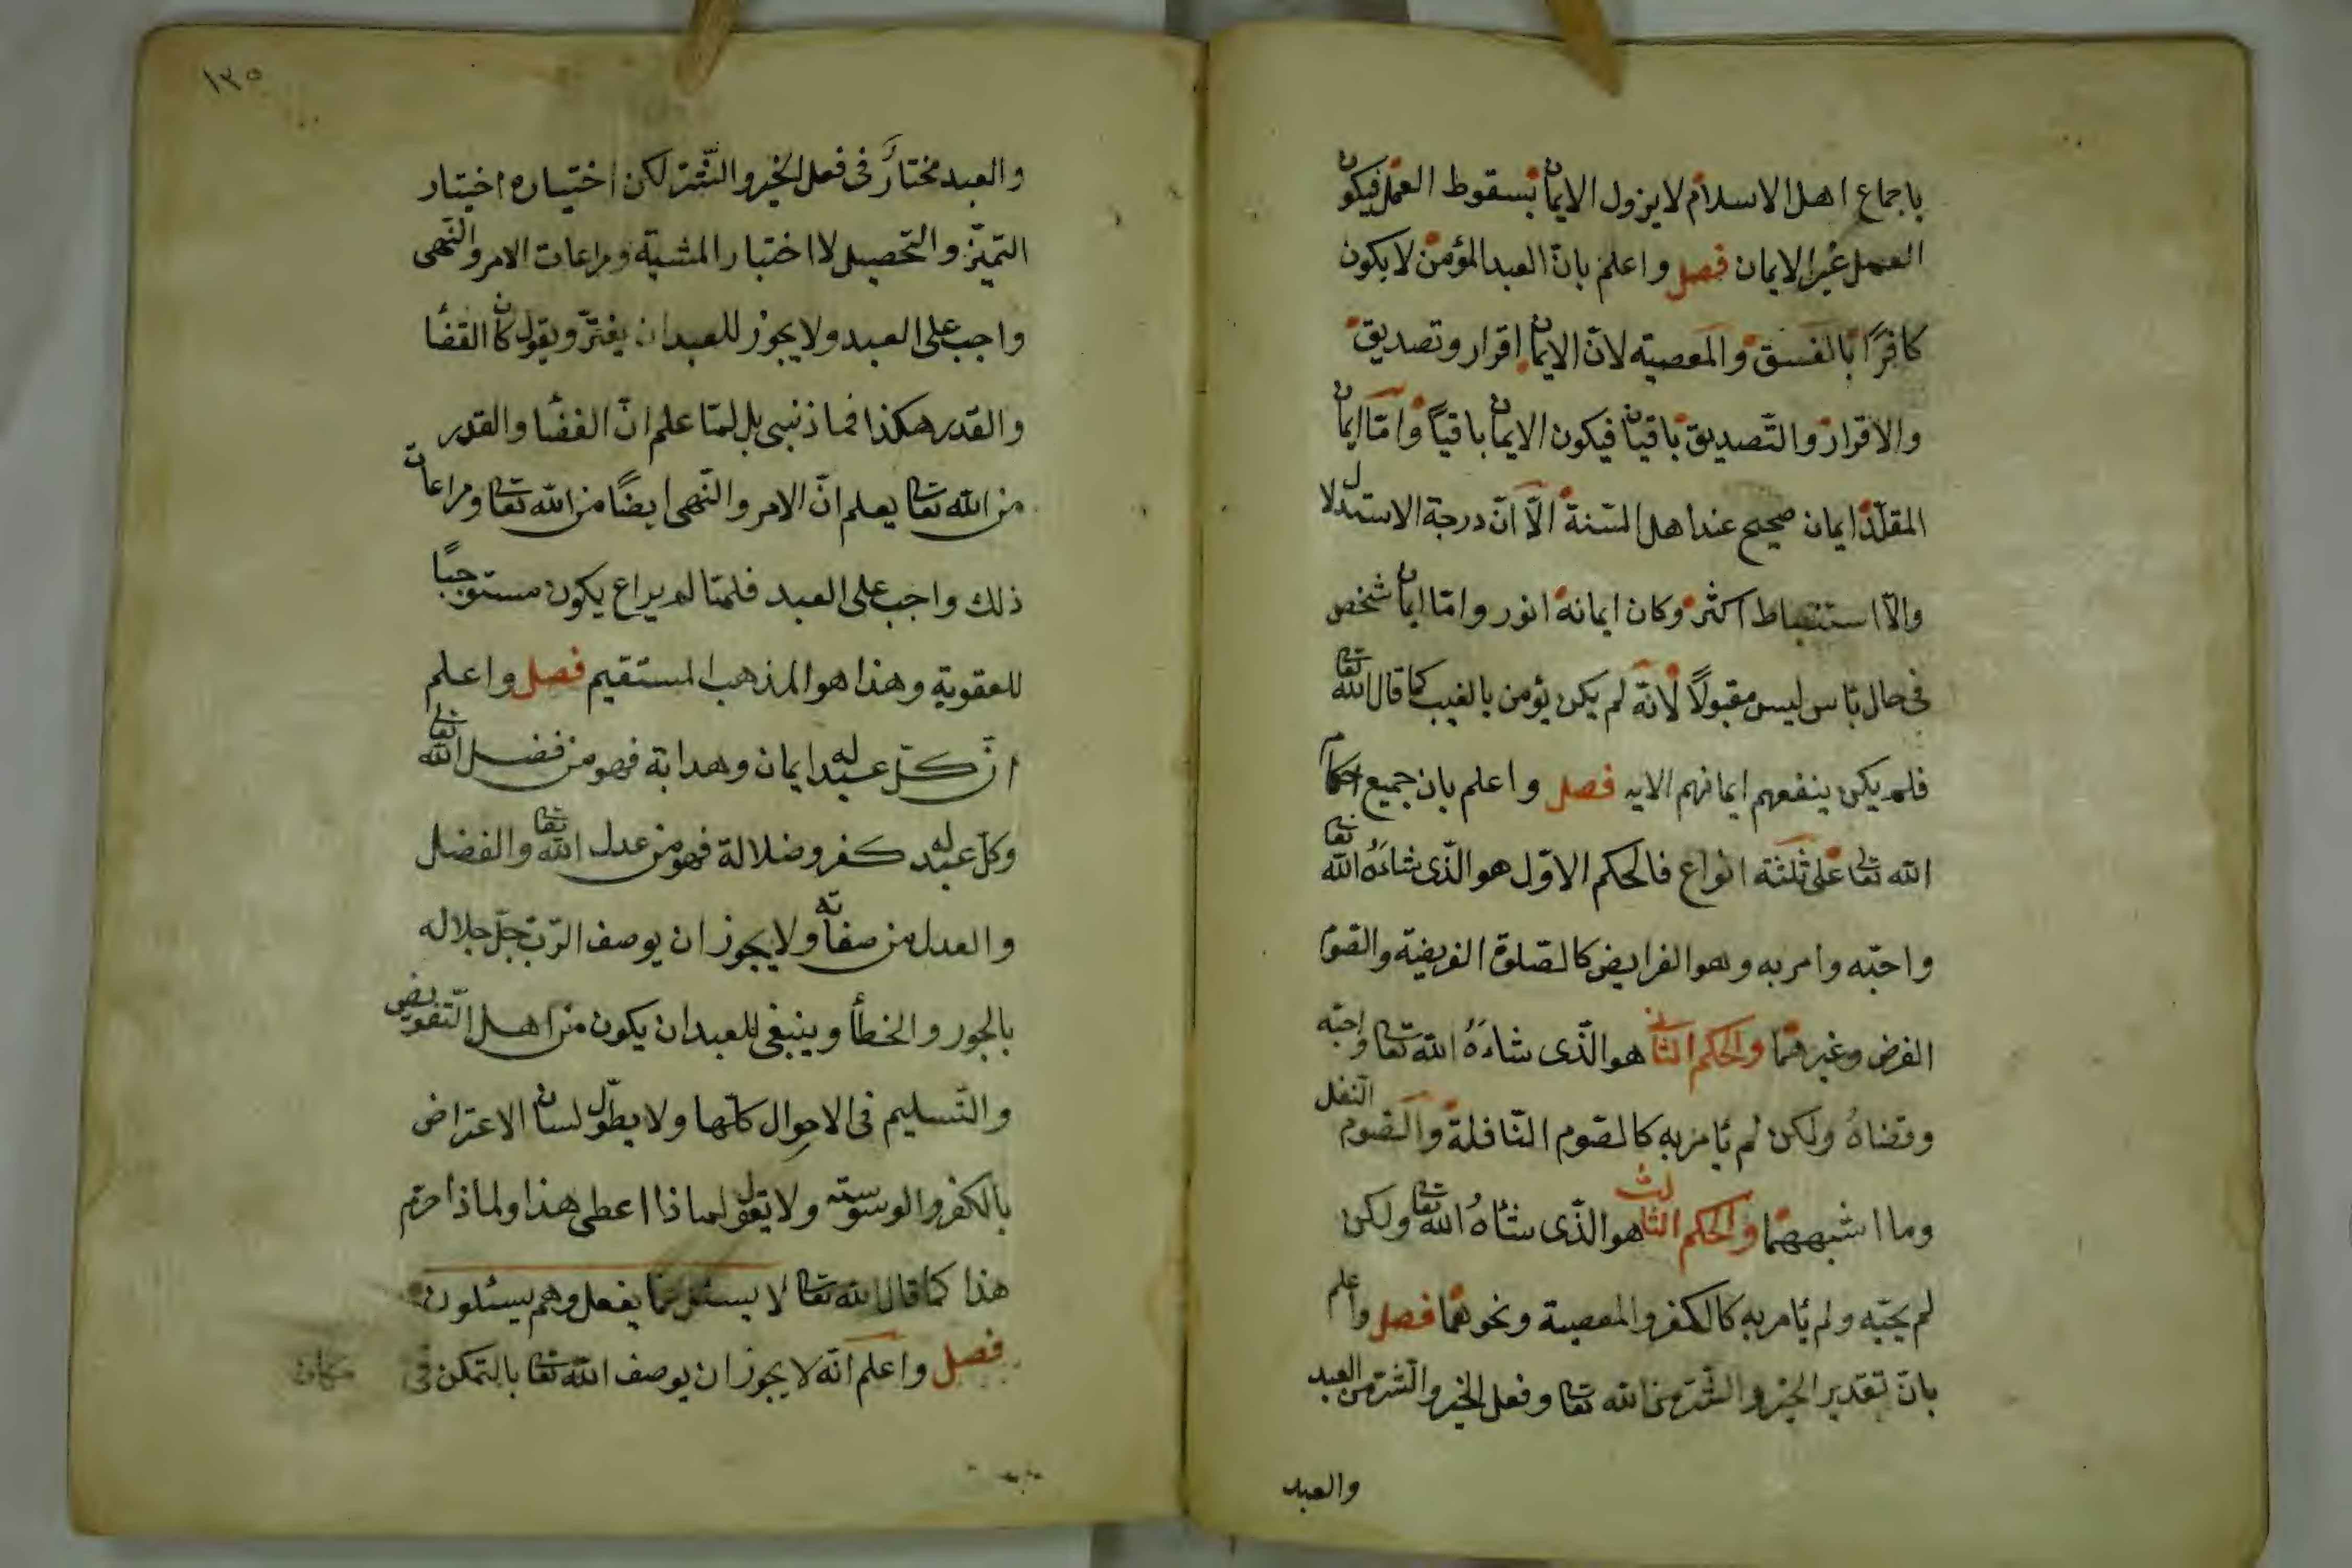 باجماع اهل الاسلام لا يزول الايمان بسقوط العمل فيكون
العمل غير الايمان فصل واعلم بانّ العبد المؤمن لا يكون
كافرًا بالفسق والمعصية لانّ الايمان اقرار وتصديق
والاقرار والتّصديق باقيان فيكون الايمان باقياً وامّا ايمان
المقلّد ايمان صحيح عند اهل السّنة الّا انّ درجة الاستدلال
والاستنباط اكثر وكان ايمانه انور وامّا ايمان شخص
فى حال بأس ليس مقبولًا لانّه لم يكن يؤمن بالغيب كما قال الله تعا
فلم يكن ينفعهم ايمانهم الايه فصل واعلم بان جميع احكام
الله تعا على ثلثة انواع فالحكم الاوّل هو الّذى شاءَهُ الله تعا
واحبّه وامر به وهو الفرايض كالصّلوة الفريضة والصّوم
الفرض وغيرهما والحكم الثانى هو الّذى شاءَهُ الله تعا واحبّه
وقضاهُ ولكن لم يأمر به كالصّوم النّافلة والصّوم النّفل
وما اشبههما والحكم الثالث هو الّذى شاهُ الله تعا ولكن
لم يحبّه ولم يأمر به كالكفر والمعصية ونحوهما فصل واعلم
بانّ تقدير الخير والشّر من الله تعا وفعل الخير والشّر من العبد
والعبد
١٣٥
والعبد مختارٌ فى فعل الخير والشّر لكن اختياره اختيار
التميّز والتّحصيل لا اختيار المشيّة ومراعات الامر والنّهى
واجب على العبد ولا يجوز للعبد ان يغترّ ويقول كان القضأ
والقدر هكذا فما ذنبى بل لمّا علم انّ القضأ والقدر
من الله تعا يعلم انّ الامر والنّهى ايضًا من الله تعا ومراعات
ذلك واجب على العبد فلمّا لم يراع يكون مستوجبًا
للعقوبة وهذا هو المذهب المستقيم فصل واعلم
انّ كلّ عبد له ايمان وهداية فهو من فضل الله تعا
وكلّ عبد له كفر وضلالة فهو من عدل الله تعا والفضل
والعدل من صفاته ولا يجوز ان يوصف الرّب جلّ جلاله
بالجور والخطأ وينبغى للعبد ان يكون من اهل التّفويض
والتّسليم فى الاحوال كلّها ولا يطوّل لسان الاعتراض
بالكفر والوسوسة ولا يقول لماذا اعطى هذا ولماذا حرّم
هذا كما قال الله تعا لا يسئل عمّا يفعل وهم يسئلون
فصل واعلم انّه لا يجوز ان يوصف الله تعا بالتمكن فى مكان